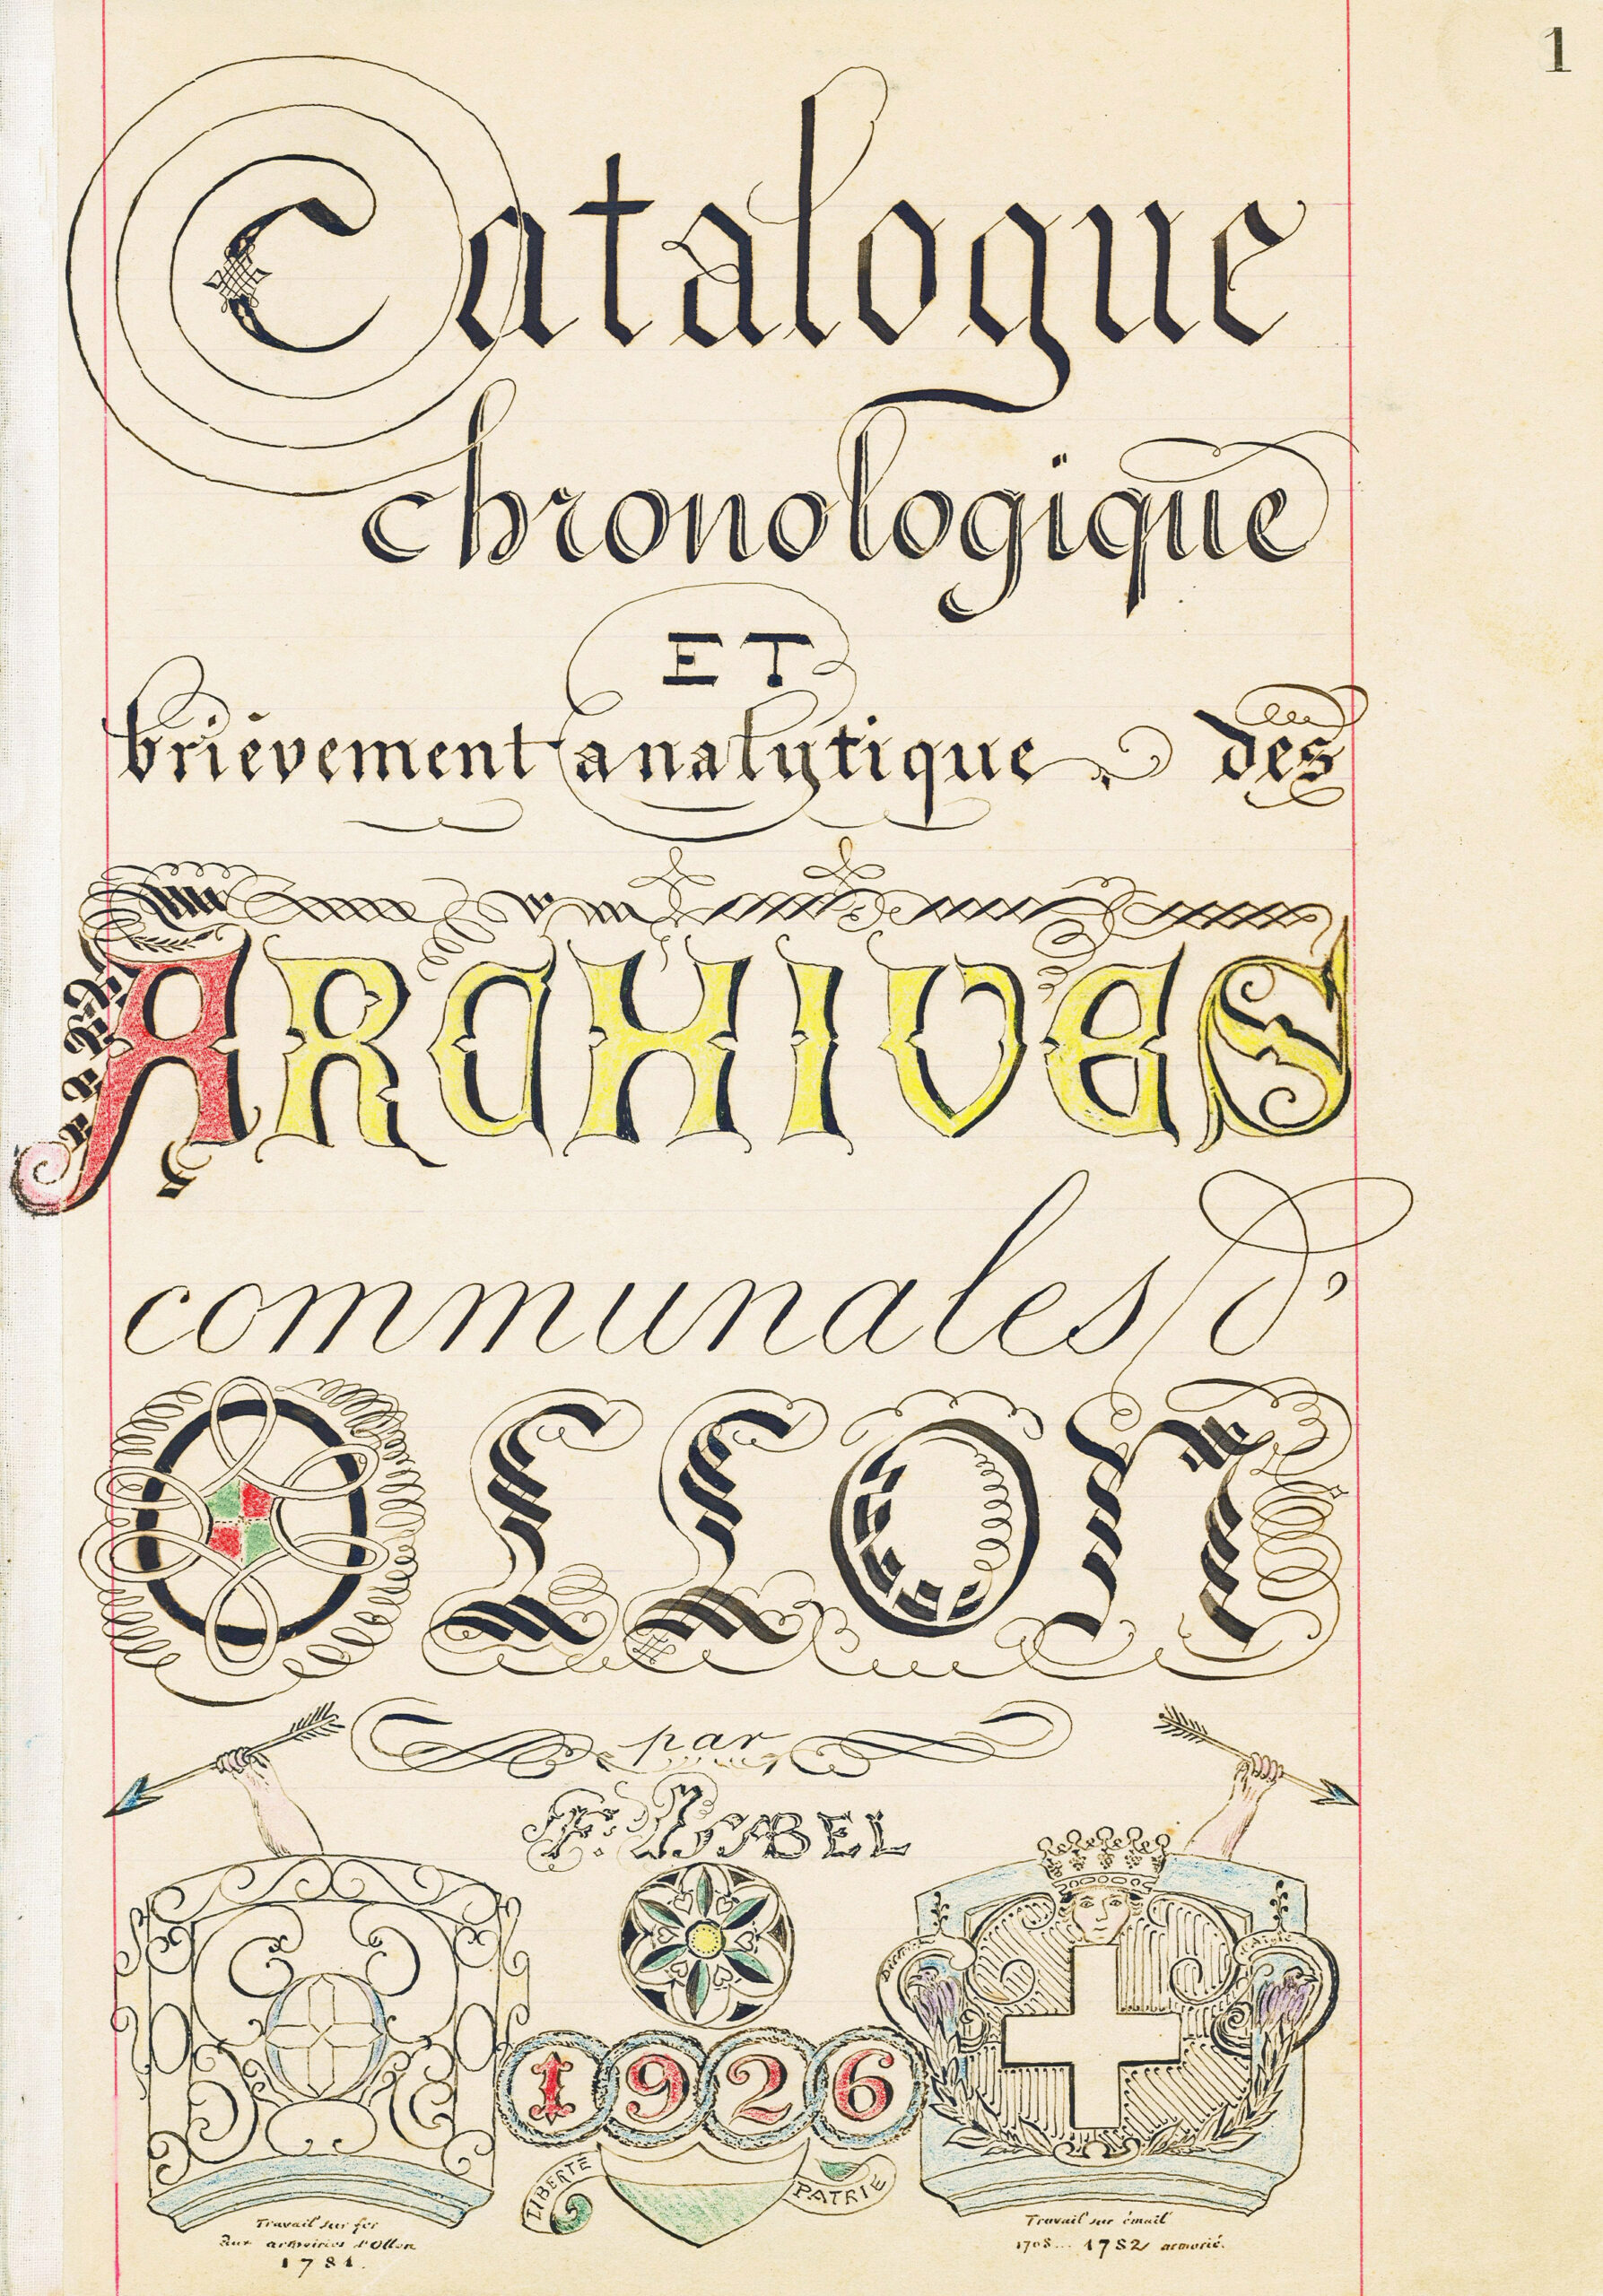 1
Catalogue
chronologique
ET
brièvement analytique des
ARCHIVES
communales d'
OLLON
par
F. ISABEL
1926
LIBERTÉ
PATRIE
Travail sur fer
aux armoiries d'Ollon
1781.
Travail sur émail
1708... 1782 armorié.